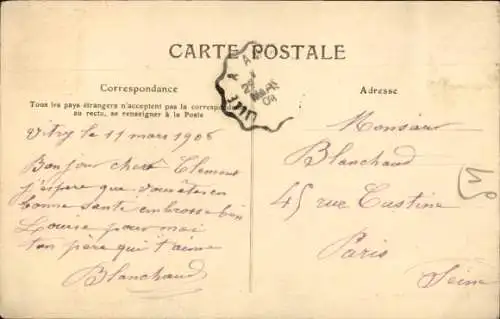 CARTE POSTALE
Correspondance
Tous les pays étrangers n'acceptent pas la correspondance
au recto, se renseigner à la Poste
Vitry le 11 mars 1908
Bonjour cher Clement
j'espere que vous êtes en
bonne santé embrosse bien
Louise pour moi
ton père qui t'aime
Blanchaud
Adresse
Monsieur
Blanchaud
45 rue Custine
Paris
Seine
MARS
08